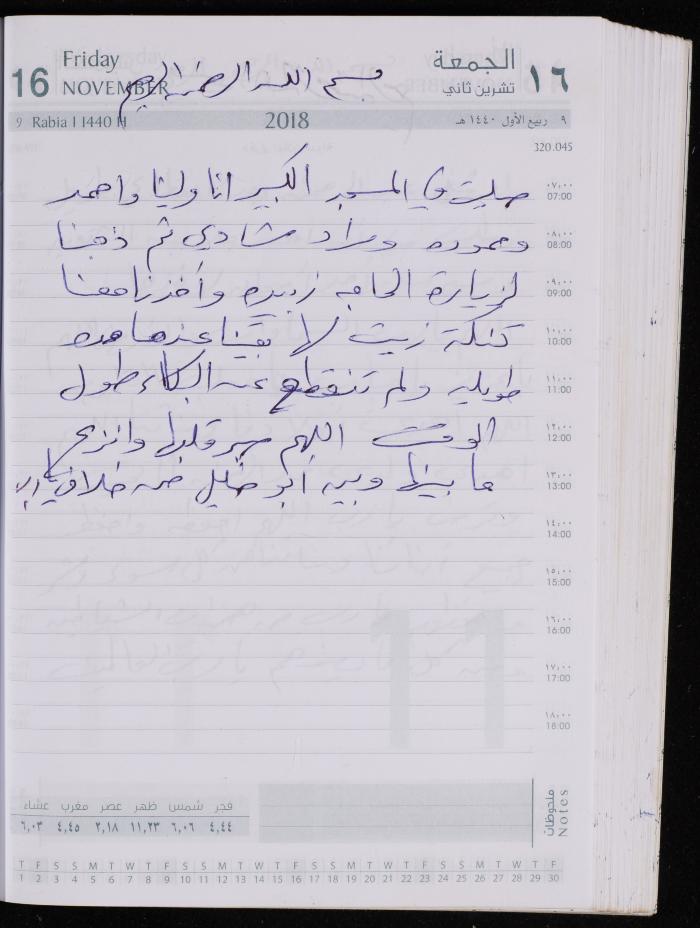 Friday
16 NOVEMBER
الجمعة
١٦ تشرين ثاني
بسم الله الرحمن الرحيم
9 Rabia I 1440 H
2018
٩ ربيع الأول ١٤٤٠ هـ
320.045
صليت في المسجد الكبير انا وليث واحمد
٠٧,٠٠
07:00
وحموده ومراد شادي ثم ذهبنا
٠٨,٠٠
08:00
لزيارة الحاجه زبيده وأخذنا معنا
٠٩,٠٠
09:00
تنكة زيت لا بقينا عندها مده
١٠,٠٠
10:00
طويله ولم تنقطع عن البكاء طول
١١,٠٠
11:00
الوقت اللهم صبر قلبها وانزع
١٢,٠٠
12:00
ما بينها وبين ابو خليل من خلاف
١٣,٠٠
13:00
١٤,٠٠
14:00
١٥,٠٠
15:00
١٦,٠٠
16:00
١٧,٠٠
17:00
١٨,٠٠
18:00
11
ملحوظات
Notes
فجر شمس ظهر عصر مغرب عشاء
٤,٤٤ ٦,٠٦ ١١,٢٣ ٢,١٨ ٤,٤٥ ٦,٠٣
T F S S M T W T F S S M T W T F S S M T W T F S S M T W T F
1 2 3 4 5 6 7 8 9 10 11 12 13 14 15 16 17 18 19 20 21 22 23 24 25 26 27 28 29 30